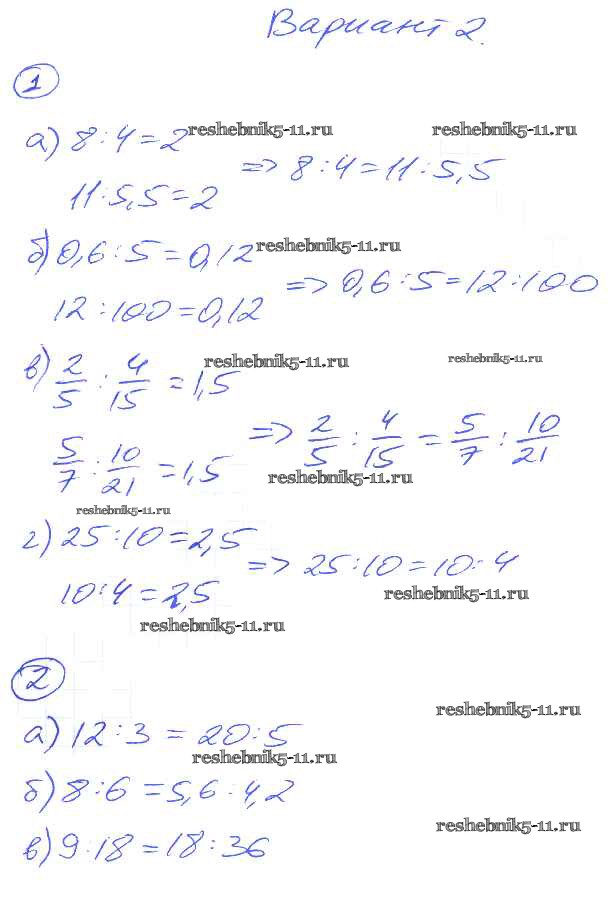 Вариант 2.
1
а) 8 : 4 = 2 reshebnik5-11.ru reshebnik5-11.ru
=> 8 : 4 = 11 : 5,5
11 : 5,5 = 2
б) 0,6 : 5 = 0,12 reshebnik5-11.ru
=> 0,6 : 5 = 12 : 100
12 : 100 = 0,12
reshebnik5-11.ru reshebnik5-11.ru
в) 2/5 : 4/15 = 1,5
=> 2/5 : 4/15 = 5/7 : 10/21
5/7 : 10/21 = 1,5
reshebnik5-11.ru
reshebnik5-11.ru
г) 25 : 10 = 2,5
=> 25 : 10 = 10 : 4
10 : 4 = 2,5 reshebnik5-11.ru
reshebnik5-11.ru
2
reshebnik5-11.ru
а) 12 : 3 = 20 : 5
reshebnik5-11.ru
б) 8 : 6 = 5,6 : 4,2
reshebnik5-11.ru
в) 9 : 18 = 18 : 36